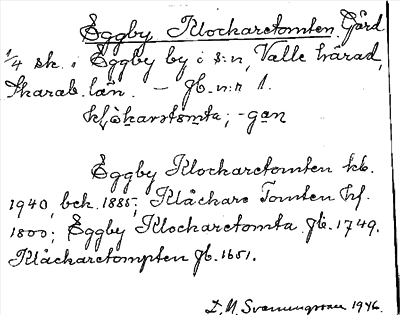 Eggby Klockaretomten. Gård
1/4 sk. i Eggby by i s:n, Valle härad,
Skarab. län. — Jb. n:r 1.
-gan
Eggby Klockaretomten kb.
1940, bck. 1885; Klåckare Tomten hf.
1800; Eggby Klockaretomta Jb. 1749.
Klåckaretompten Jb. 1651.
1946.